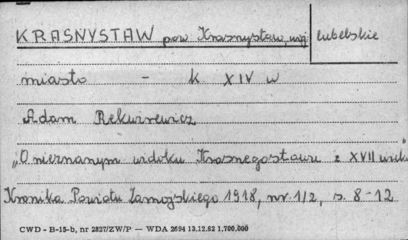 KRASNYSTAW pow Krasnystaw, woj lubelskie
miasto - k XIV w
Adam Rekwirewicz
„O nieznanym widoku Krasnegostawu z XVII wieku
Kronika Powiatu Zamojskiego 1918, nr 1/2, s. 8-12
CWD - B-15-b, nr 2827/ZW/P — WDA 2694 13.12.62 1.700.000